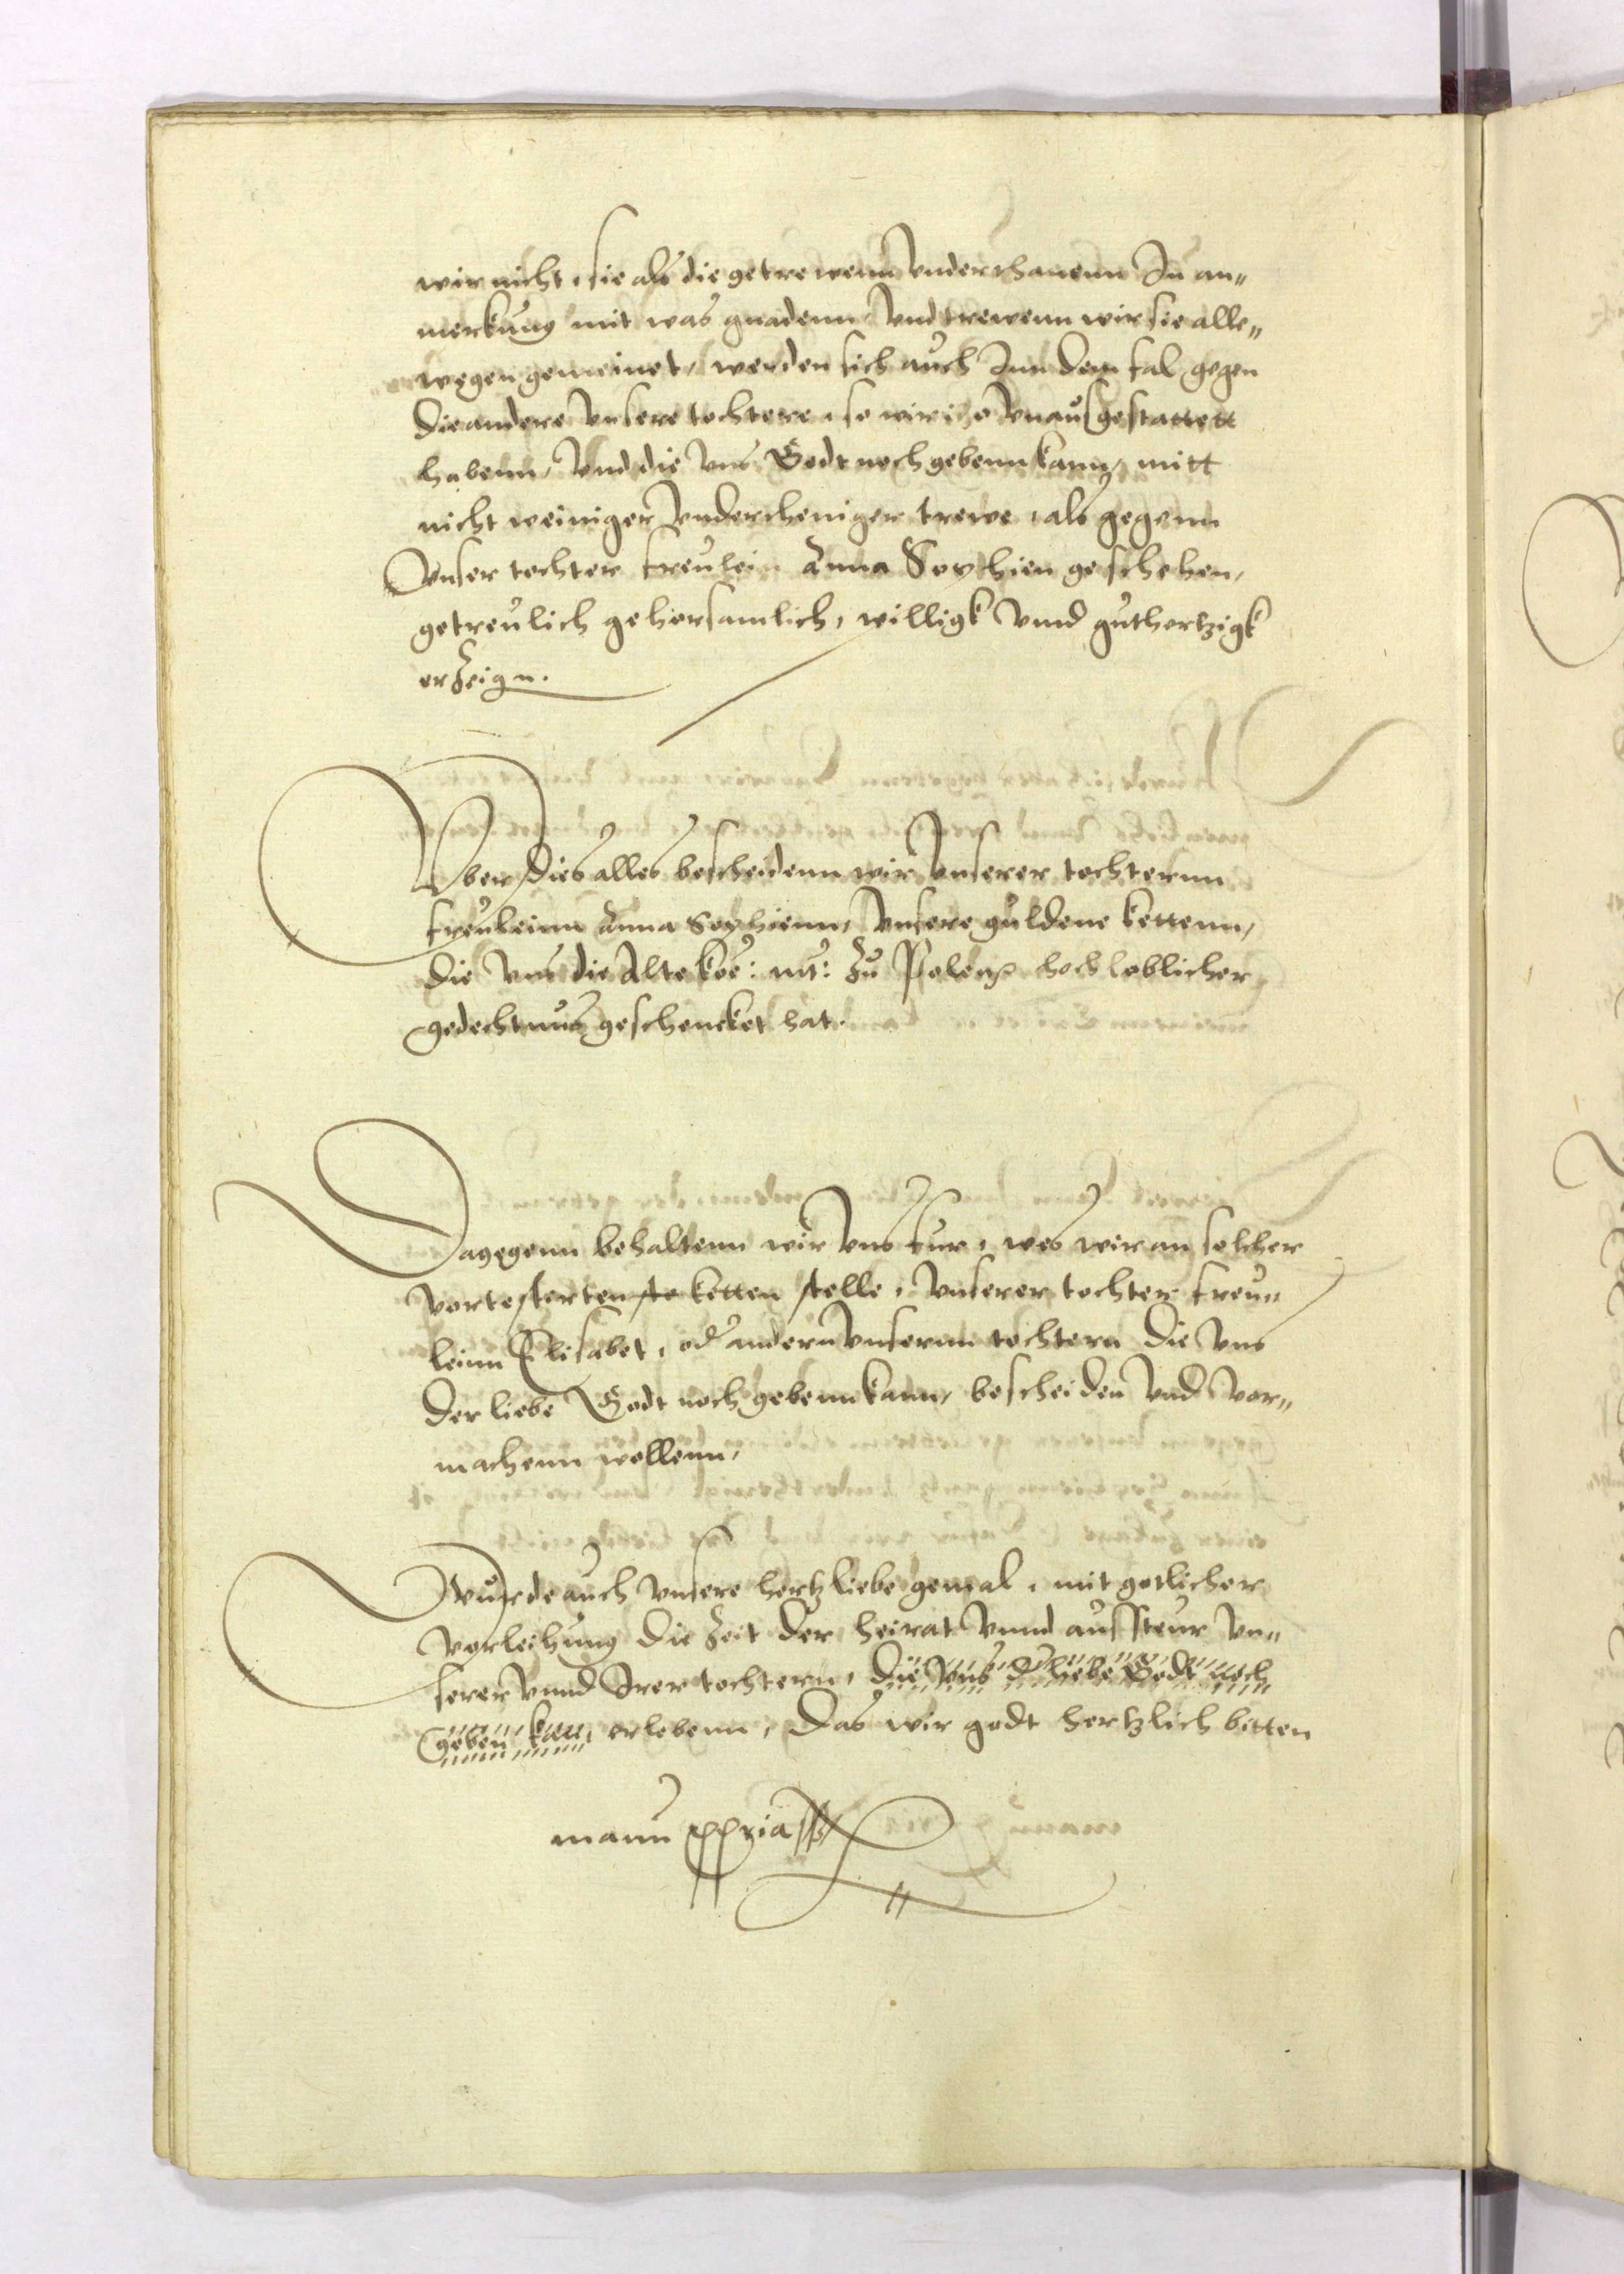 wir nicht, sie als die getrewenn Underthanenn In an„
merkung mit was gnadenn, und trewenn wir sie alle„
wegen gemeinet, werden sich auch Inn dem fal gegen
die andere unsere tochtere, so wir itzo unausgestattett
habenn, und die uns Godt noch gebenn kann, mitt
nicht weiniger undertheniger trewe, als gegenn
Unser tochter freulein Anna Sophien geschehen,
getreulich gehorsamlich, willigk vnnd guthertzigk
erzeign.
Vber dies alles bescheidenn wir Unserer tochternn
freuleinn Anna Sophienn, Unsere guldene kettenn,
die uns die Alte koe: mt: zu Polenn hochloblicher
gedechtnus geschencket hat.
Dagegenn behaltenn wir uns fur, was wir an solcher
vortesterten ketten stelle, unserer tochter freu„
leinn Elisabet, od andern unsernn tochtern die uns
der liebe Godt noch gebenn kann, bescheiden und vor„
machenn wollenn,
Wurde auch unsere hertzliebe gemal, mit gotlicher
vorleihung die zeit der heirat vnnd aussteur un„
serer vnnd Irer tochtern, die uns d liebe Godt noch
geben kan, erlebenn, das wir godt hertzlich bitten
manu ppria sst